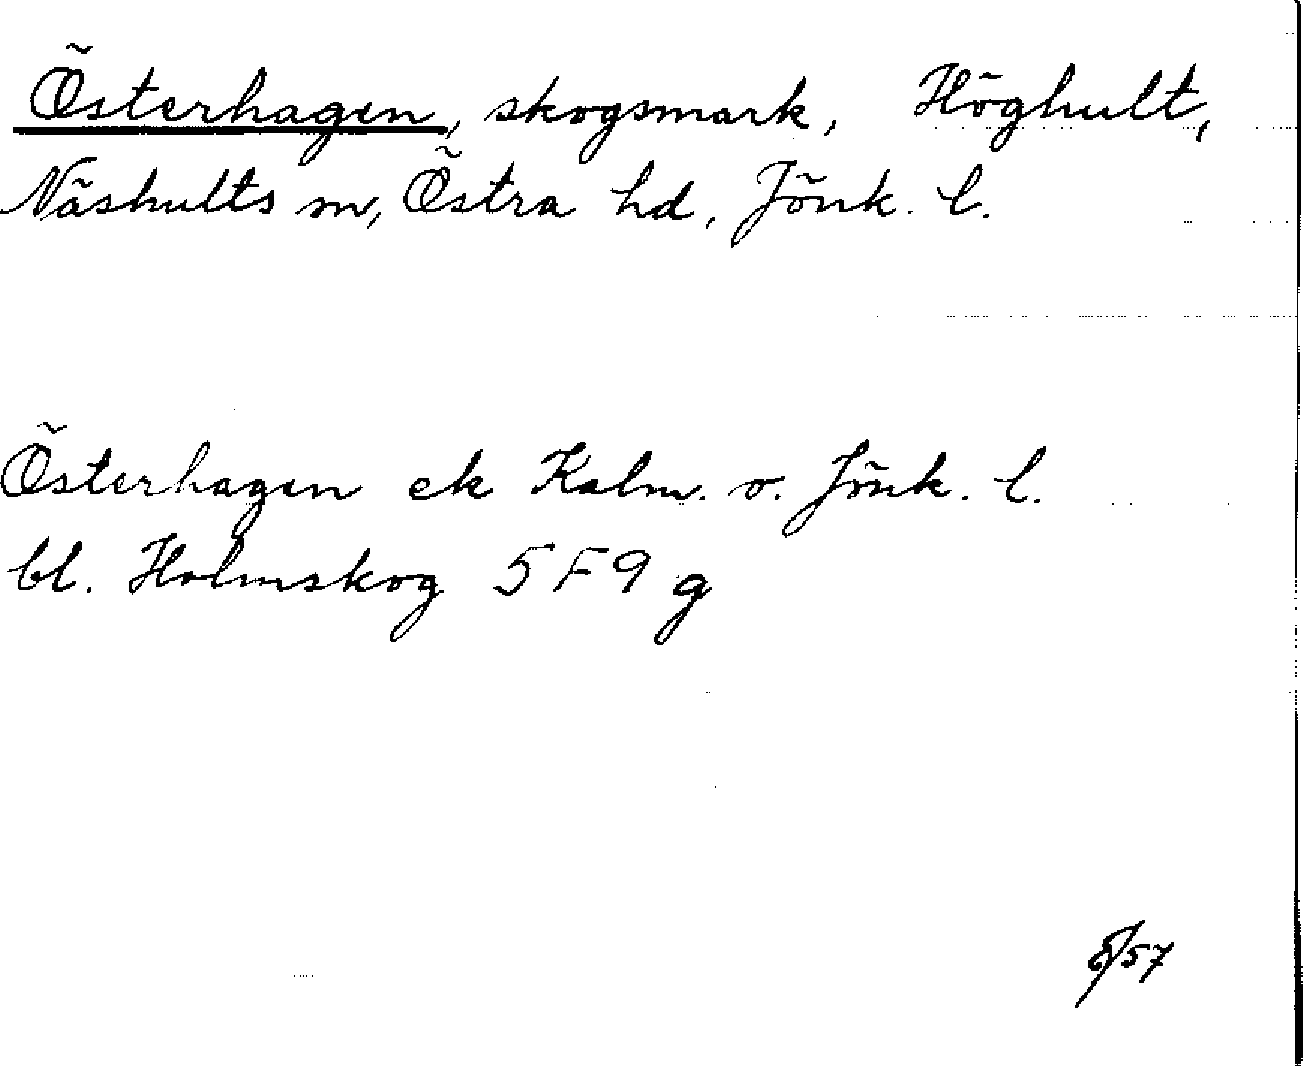 Österhagen, skogsmark, Höghult,
Näshults sn, Östra hd, Jönk. l.
Österhagen ek Kalm. o. Jönk. l.
bl. Holmskog 5F9g
/57